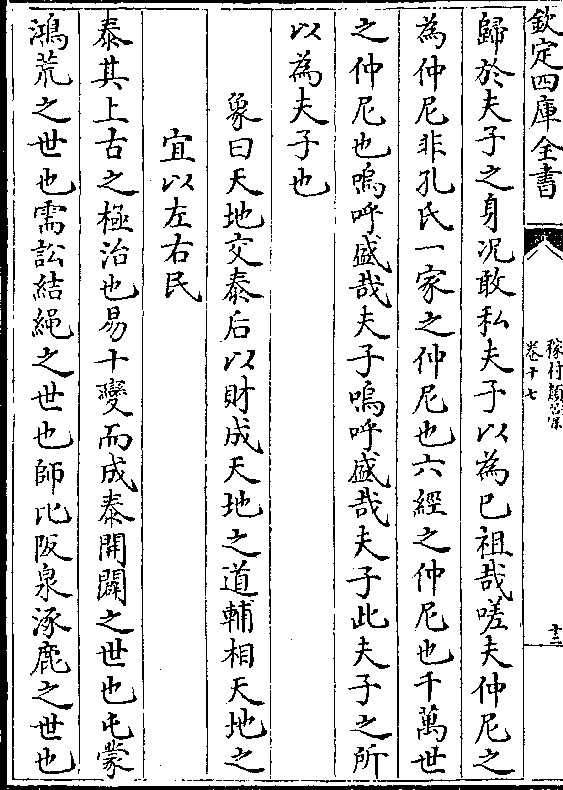 欽定四庫全書
稼村類藁
卷十七
十三
歸於夫子之身况敢私夫子以為已祖哉嗟夫仲尼之
為仲尼非孔氏一家之仲尼也六經之仲尼也千萬世
之仲尼也嗚呼盛哉夫子嗚呼盛哉夫子此夫子之所
以為夫子也
象曰天地交泰后以財成天地之道輔相天地之
宜以左右民
泰其上古之極治也易十變而成泰開闢之世也屯蒙
鴻荒之世也需訟結繩之世也師比阪泉涿鹿之世也